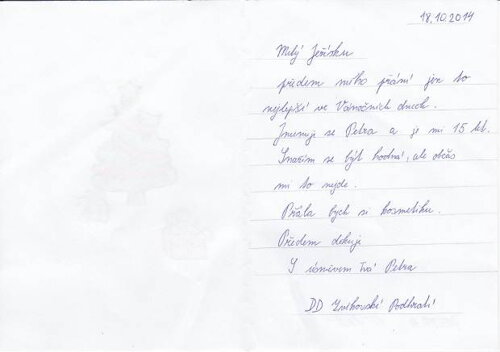 18.10.2014
Milý Ježíšku
předem mého přání jen to
nejlepší ve Vánočních dnech.
Jmenuji se Petra a je mi 15 let.
Snažím se být hodná, ale občas
mi to nejde.
Přála bych si kosmetiku.
Předem děkuji
S úsměvem tvá Petra
DD Zvíkovské Podhradí